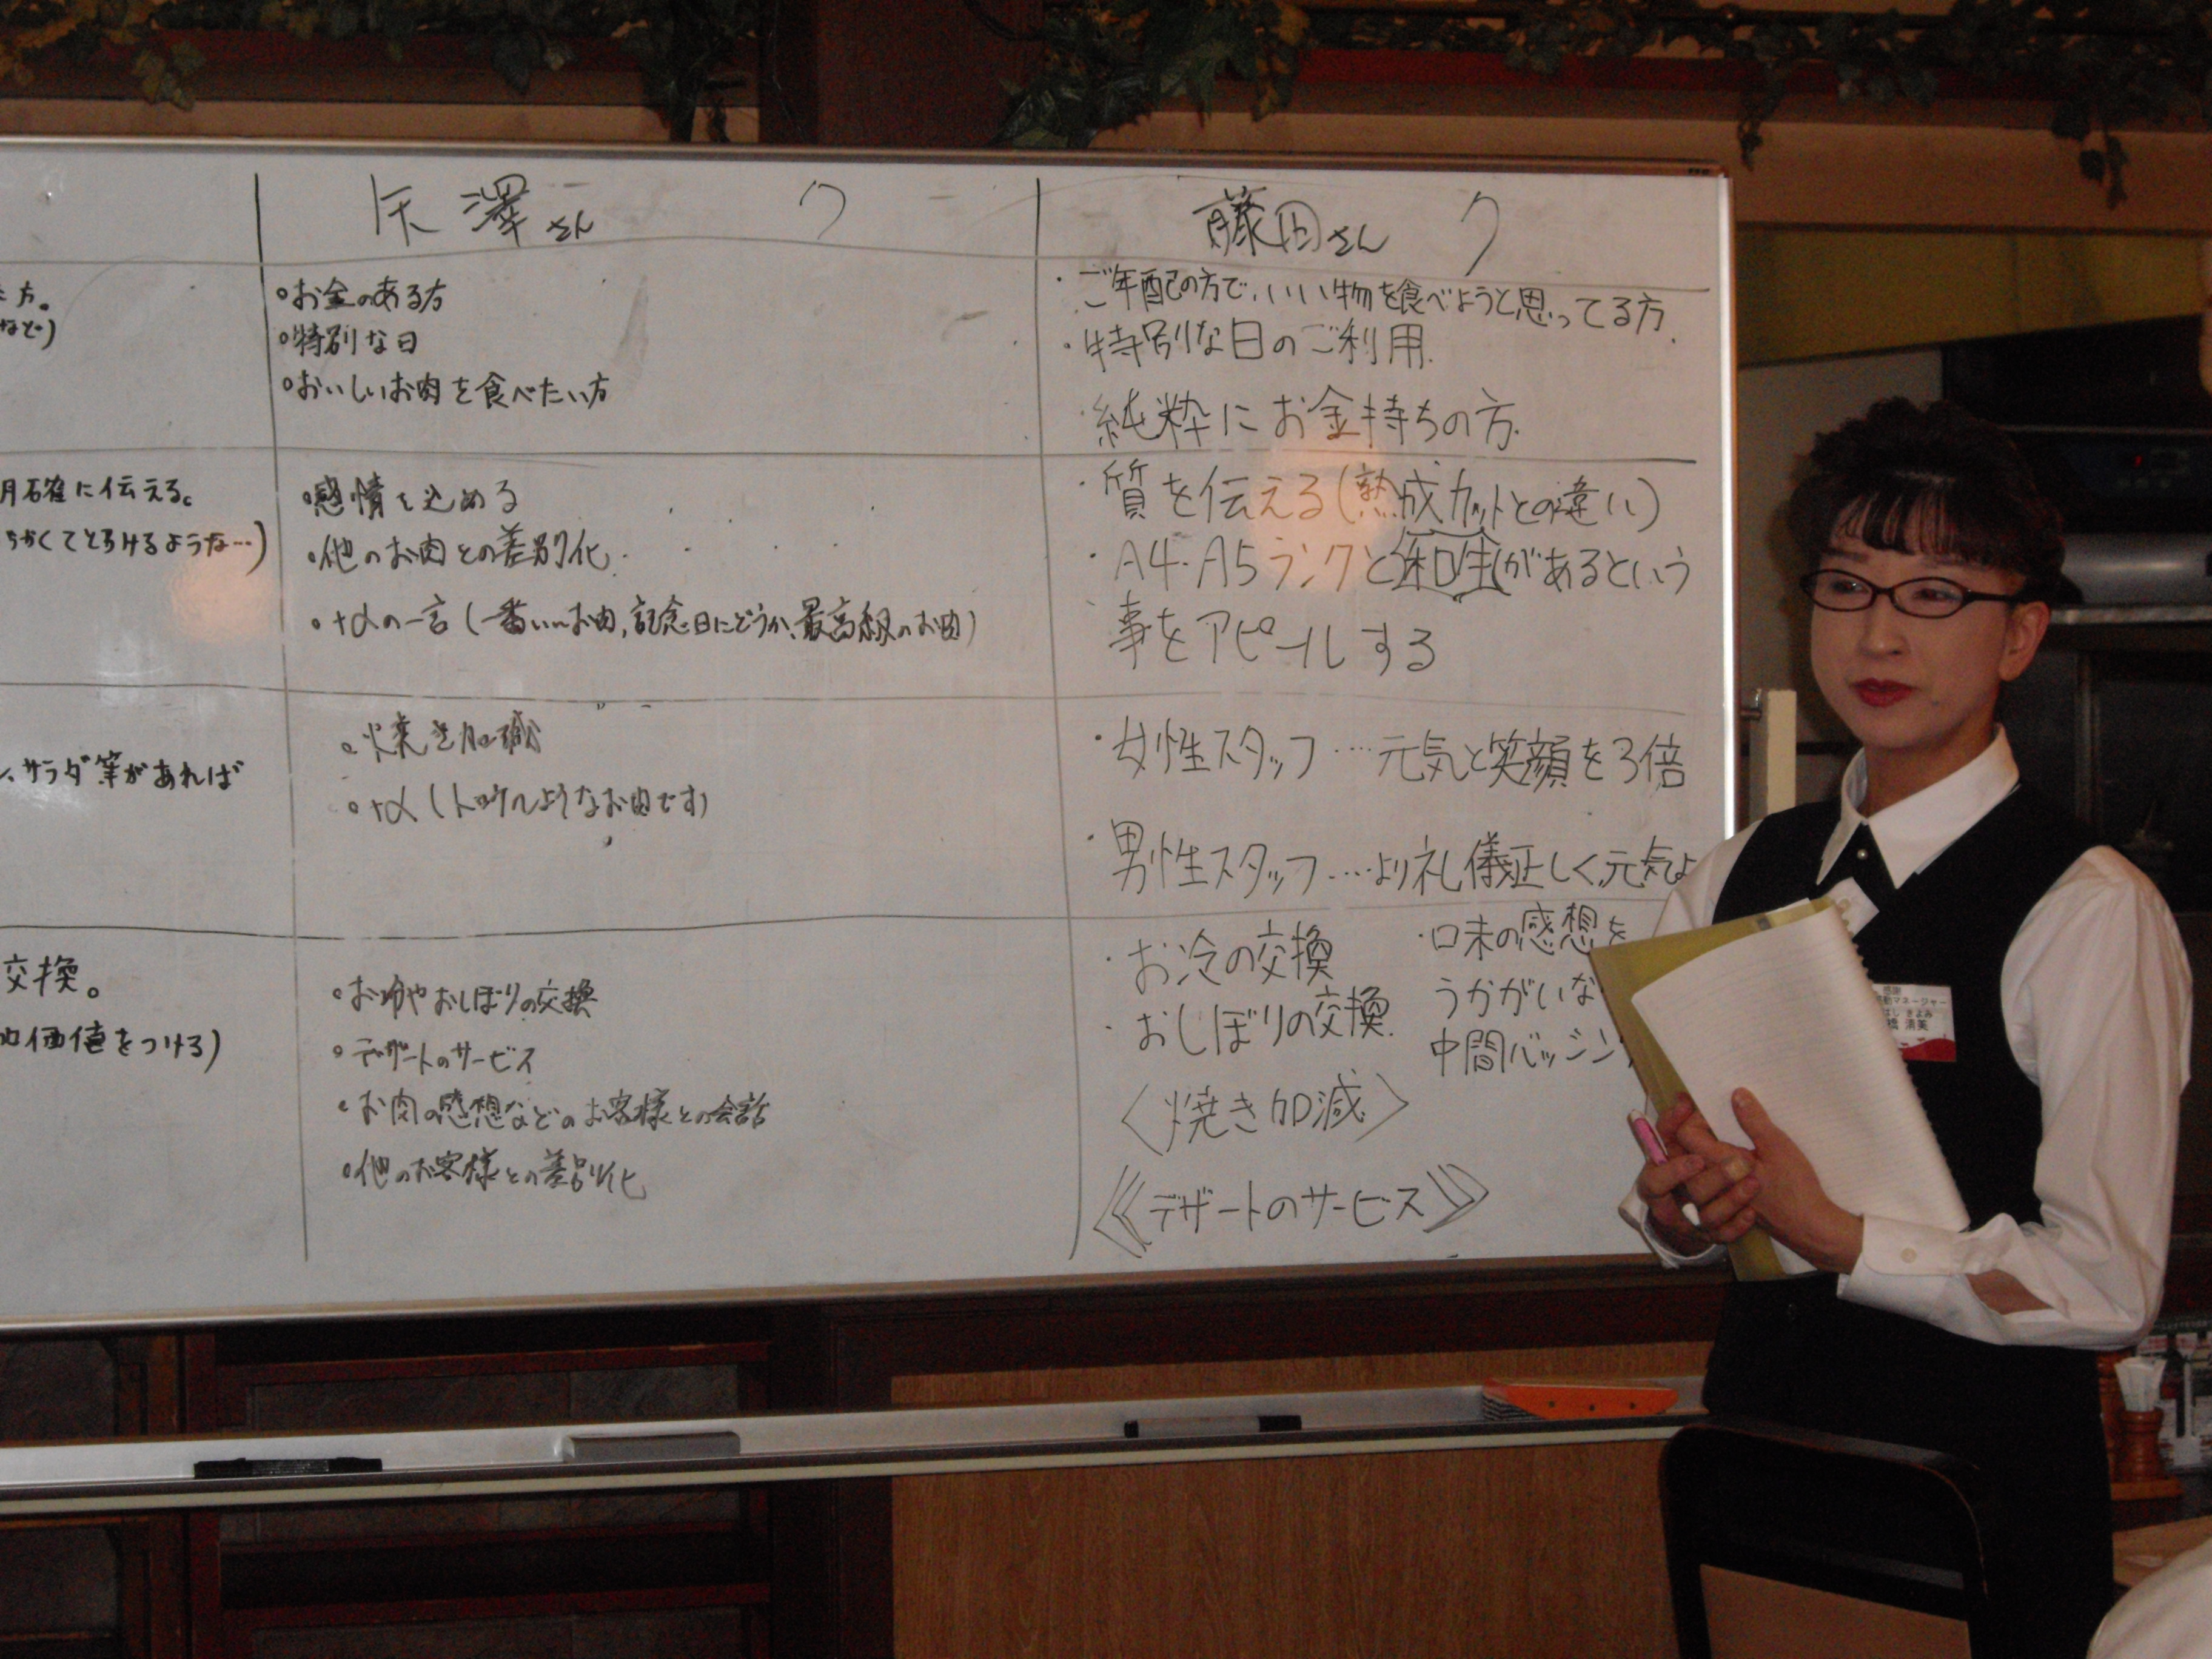 方。
など)
月確に伝える。
らかくてとろけるような…)
、サラダ等があれば
交換。
価値をつける)
矢澤さん ク
・お金のある方
・特別な日
・おいしいお肉を食べたい方
・感情を込める
・他のお肉との差別化
・+αの一言(一番いいお肉,記念日にどうか、最高級のお肉)
・焼き加減
・+α(トロケルようなお肉です)
・お冷やおしぼりの交換
・デザートのサービス
・お肉の感想などのお客様との会話
・他のお客様との差別化
藤田さん ク
・ご年配の方で、いい物を食べようと思ってる方.
・特別な日のご利用.
・純粋にお金持ちの方.
・質を伝える(熟成カットとの違い)
・A4・A5ランクと和牛があるという
事をアピールする
・女性スタッフ…元気と笑顔を3倍
・男性スタッフ…より礼儀正しく,元気よ
・お冷の交換
・おしぼりの交換.
〈焼き加減〉
《デザートのサービス》
・口未の感想を
うかがいな
中間バッシン
感謝
感動マネージャー
はし きよみ
橋 清美